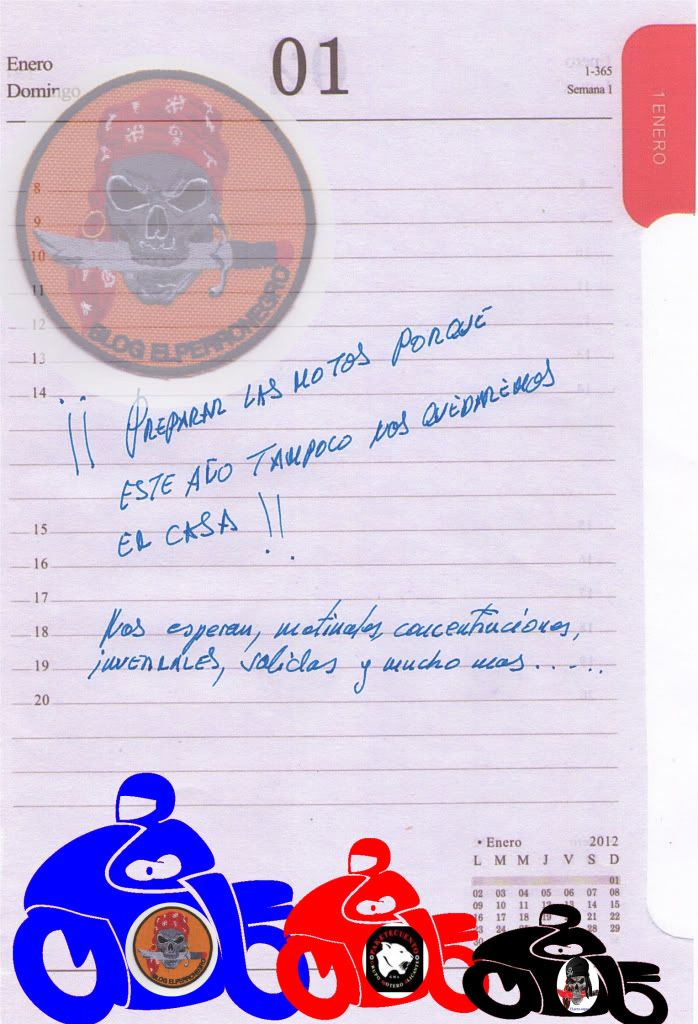 Enero
01
1-365
Domingo
Semana 1
1 ENERO
8
9
10
11
12
13
14
BLOG ELPERRONEGRO
¡¡ PREPARAR LAS MOTOS PORQUE
ESTE AÑO TAMPOCO NOS QUEDAREMOS
EN CASA !!
15
16
17
18
19
20
Nos esperan, matinales, concentraciones,
invernales, salidas y mucho mas......
• Enero 2012
L M M J V S D
01
02 03 04 05 06 07 08
09 10 11 12 13 14 15
16 21 22
28 29
BLOG ELPERRONEGRO